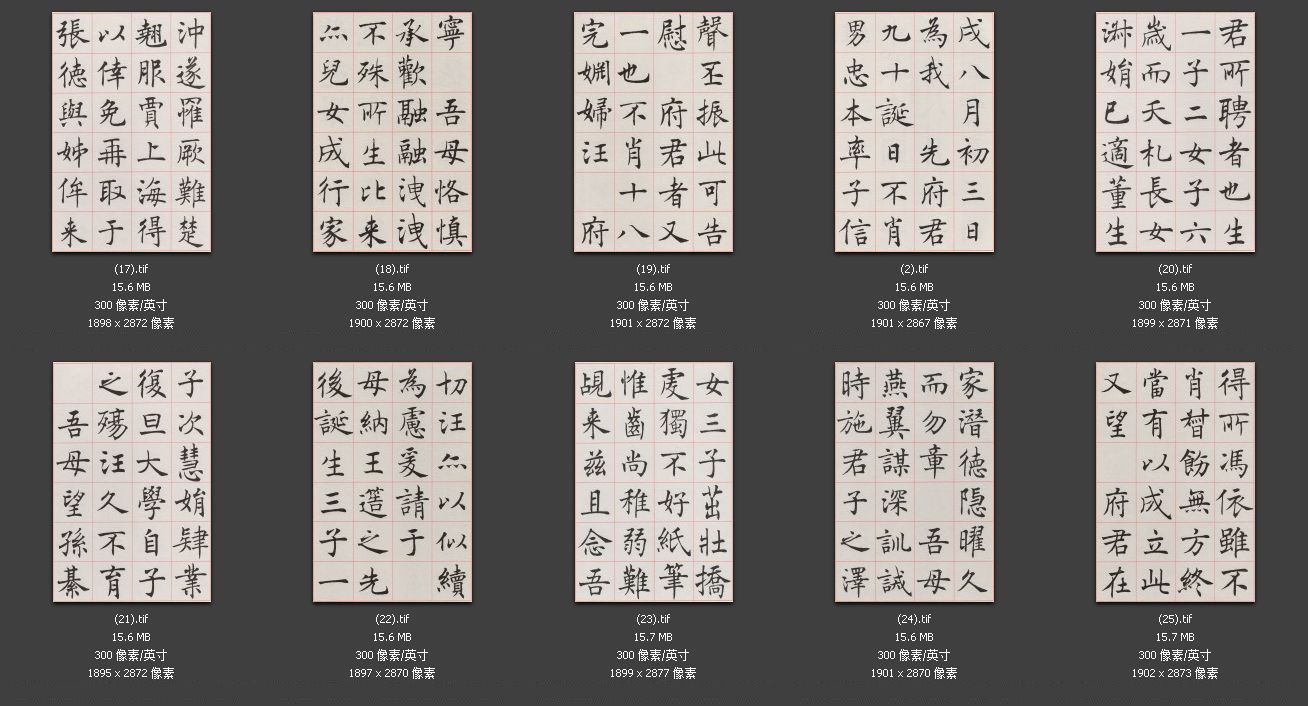 沖遂罹厥難楚
翹服賈上海得
以倖免再取于
張徳與姊侔来
寧 吾母恪慎
承歡融融洩洩
不殊所生比来
亦兒女成行家
聲丕振此可告
慰 府君者又
一也不肖十八
完婣婦汪 府
(17).tif
15.6 MB
300 像素/英寸
1898 x 2872 像素
(18).tif
15.6 MB
300 像素/英寸
1900 x 2872 像素
(19).tif
15.6 MB
300 像素/英寸
1901 x 2872 像素
戌八月初三日
為我 先府君
九十誕日不肖
男忠本率子信
(2).tif
15.6 MB
300 像素/英寸
1901 x 2867 像素
君所聘者也生
一子二女子六
歳而夭札長女
娟已適董生
(20).tif
15.6 MB
300 像素/英寸
1899 x 2871 像素
子次慧娟肄業
復旦大學自子
之殤汪久不育
吾母望孫綦
(21).tif
15.6 MB
300 像素/英寸
1895 x 2872 像素
切汪亦以似續
為慮爰請于
母納王之先
後誕生三子一
(22).tif
15.6 MB
300 像素/英寸
1897 x 2870 像素
女三子茁壯撟
處獨不好紙筆
惟齒尚稚弱難
覘来茲且念吾
(23).tif
15.7 MB
300 像素/英寸
1899 x 2877 像素
家潛徳隠曜久
而勿章 吾母
燕翼謀深訓誠
時施君子之澤
(24).tif
15.6 MB
300 像素/英寸
1901 x 2870 像素
得所馮依雖不
肖飭無方終
當有以成立此
又望 府君在
(25).tif
15.7 MB
300 像素/英寸
1902 x 2873 像素